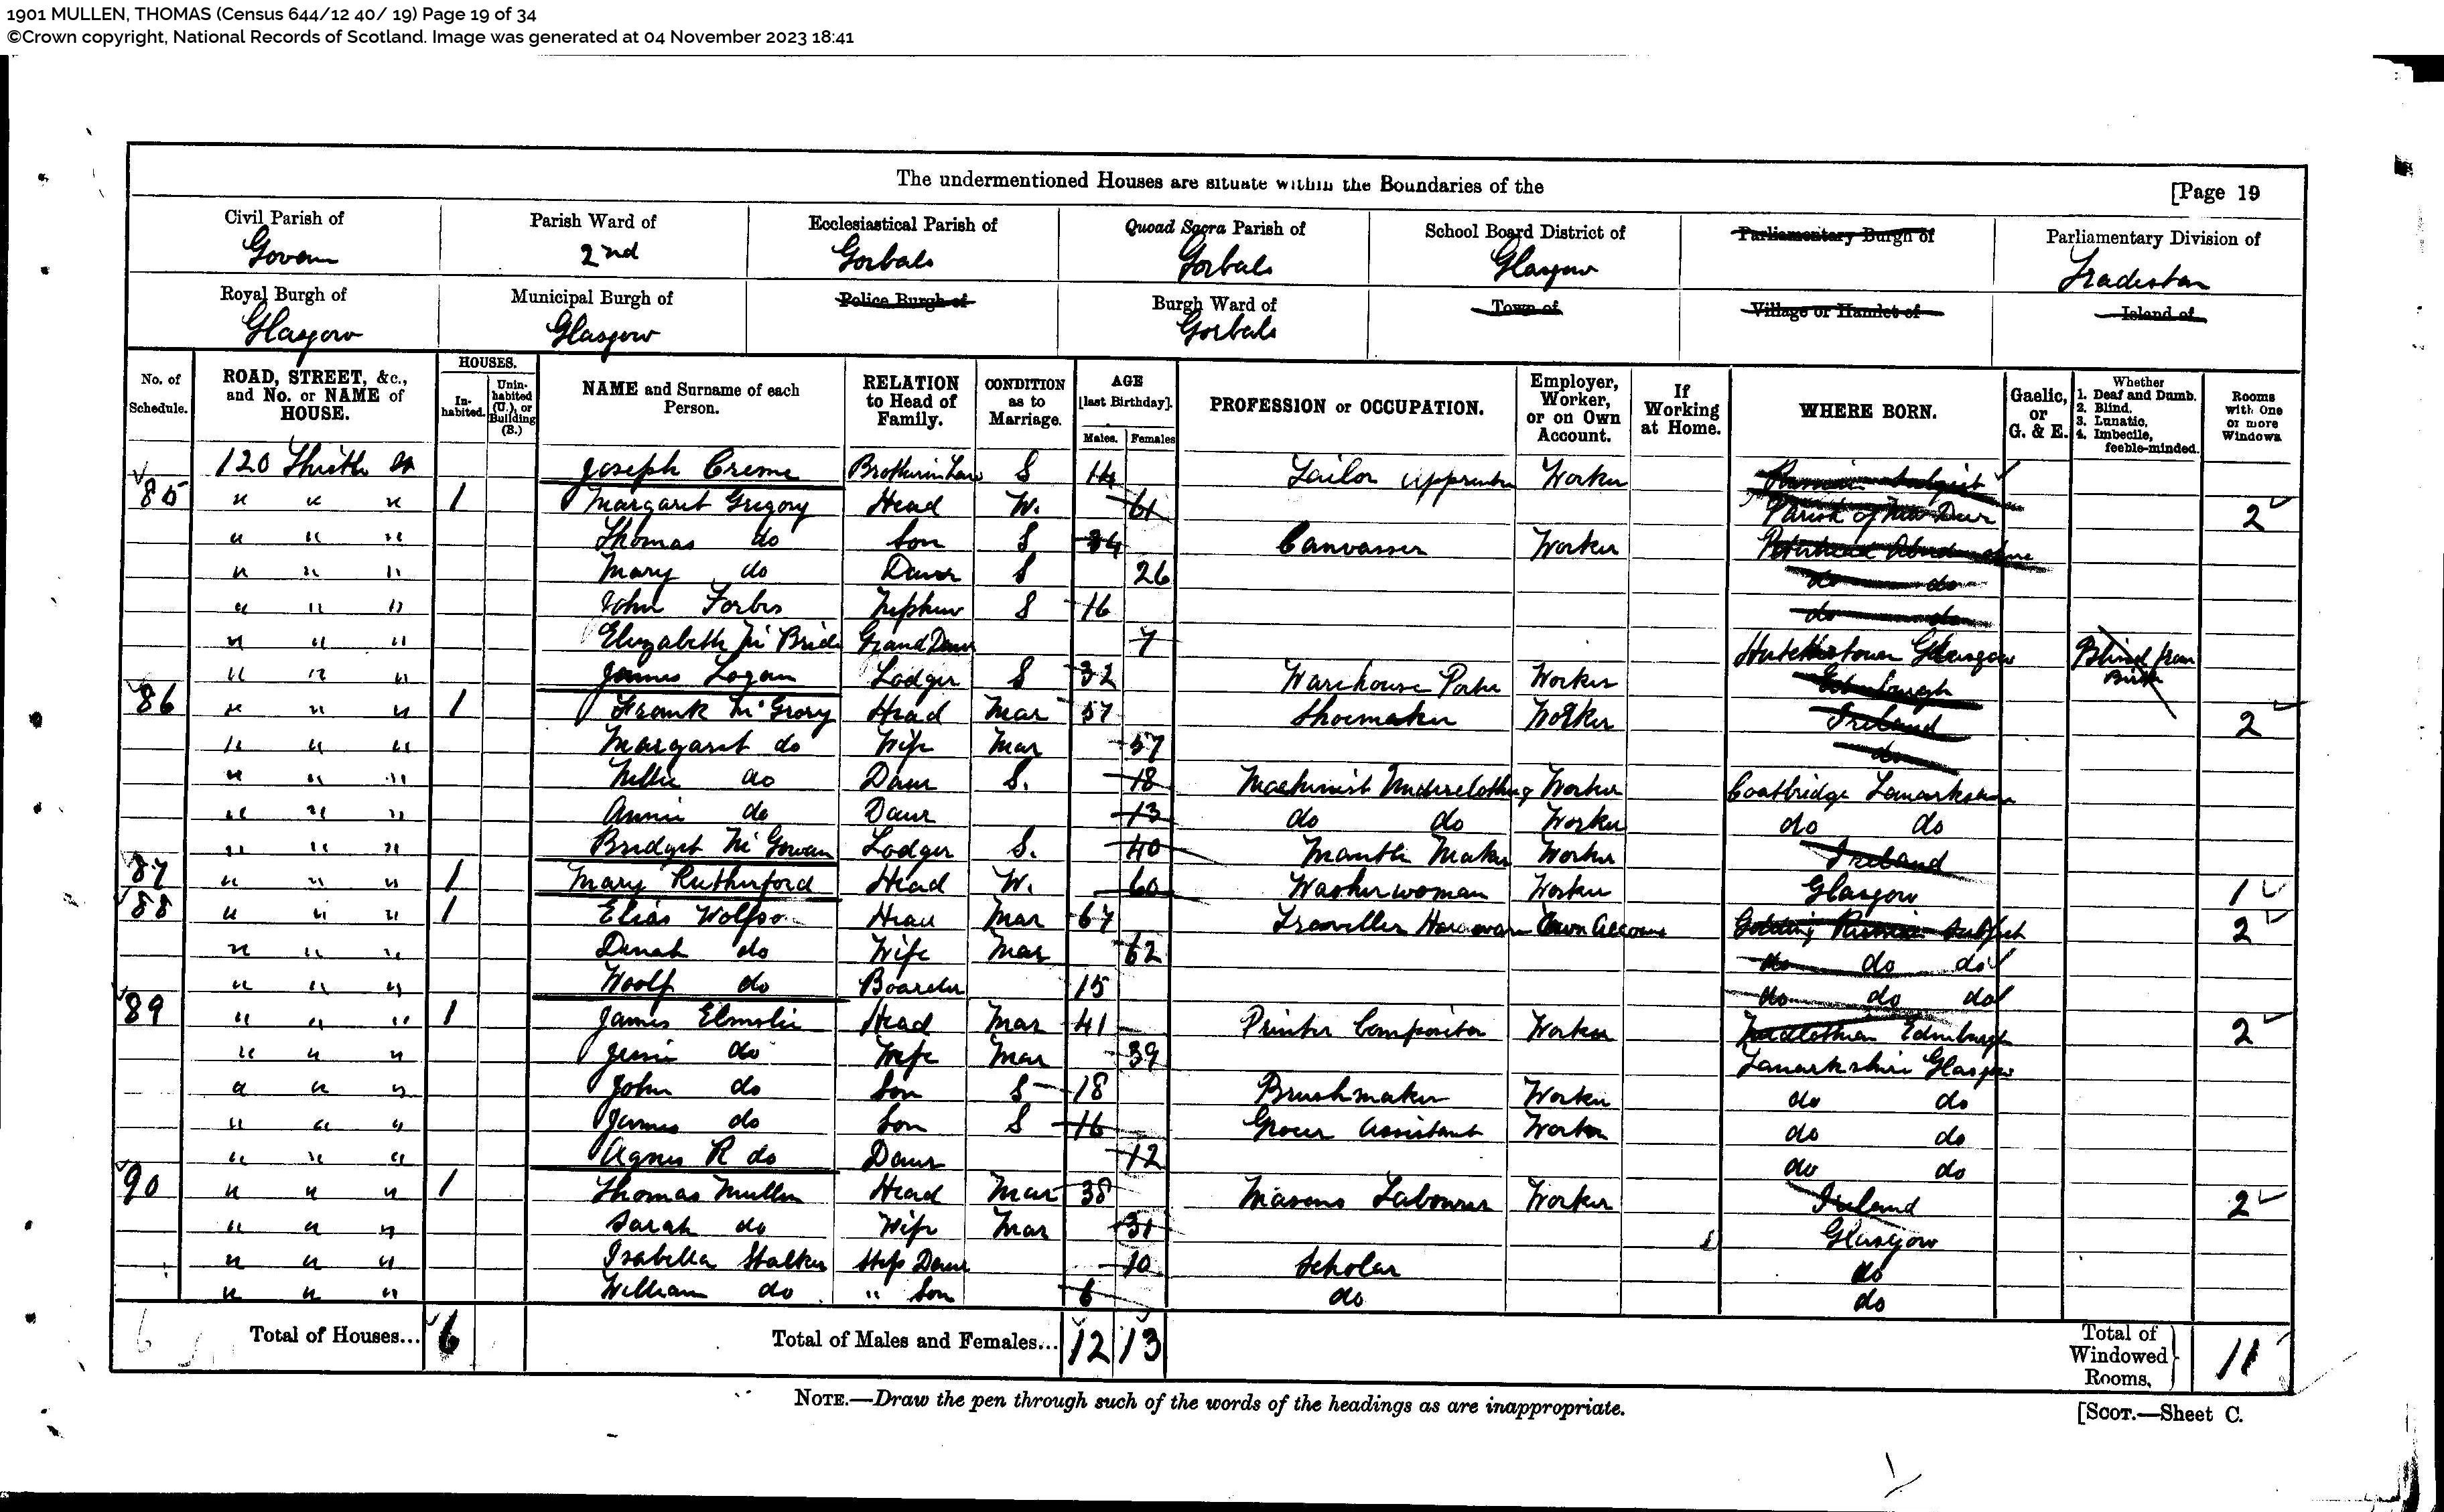 1901 MULLEN, THOMAS (Census 644/12 40/ 19) Page 19 of 34
©Crown copyright, National Records of Scotland. Image was generated at 04 November 2023 18:41
The undermentioned Houses are situate within the Boundaries of the [Page 19
Civil Parish of Parish Ward of Ecclesiastical Parish of Quoad Sacra Parish of School Board District of Parliamentary Burgh of Parliamentary Division of
Govan 2nd Gorbals Gorbals Glasgow Tradeston
Royal Burgh of Municipal Burgh of Police Burgh of Burgh Ward of Town of Village or Hamlet of Island of
Glasgow Glasgow Gorbals
No. of Schedule. ROAD, STREET, &c., and No. or NAME of HOUSE. HOUSES. Inhabited. Uninhabited (U.), or Building (B.) NAME and Surname of each Person. RELATION to Head of Family. CONDITION as to Marriage. AGE [last Birthday]. Males. Females PROFESSION or OCCUPATION. Employer, Worker, or on Own Account. If Working at Home. WHERE BORN. Gaelic, or G. & E. Whether 1. Deaf and Dumb. 2. Blind. 3. Lunatic. 4. Imbecile, feeble-minded. Rooms with One or more Windows
120 Thistle St Joseph Creme Brother in Law S 14 Tailor Apprentice Worker Russian Subject
85 " " " 1 Margaret Gregory Head W. 61 Parish of New Deer 2
" " " Thomas do Son S 34 Canvasser Worker Peterhead Aberdeenshire
" " " Mary do Daur S 26 do do
" " " John Forbes Nephew S 16 do do
" " " Elizabeth Mc Bride Grand Daur 7 Hutchesontown Glasgow Blind from Birth
" " " James Logan Lodger S 32 Warehouse Porter Worker Edinburgh
86 " " " 1 Frank McGrory Head Mar 57 Shoemaker Worker Ireland 2
" " " Margaret do Wife Mar 57 do
" " " Nellie do Daur S. 18 Machinist Underclothing Worker Coatbridge Lanarkshire
" " " Annie do Daur 13 do do Worker do do
" " " Bridget Mc Gowan Lodger S. 40 Mantle Maker Worker Ireland
87 " " " 1 Mary Rutherford Head W. 60 Washerwoman Worker Glasgow 1
88 " " " 1 Elias Wolfso Head Mar 67 Traveller Hardware Own Account Russian Subject 2
" " " Denah do Wife Mar 62 do do do
" " " Woolf do Boarder 15 do do do
89 " " " 1 James Elmslie Head Mar 41 Printer Compositor Worker Midlothian Edinburgh 2
" " " Jessie do Wife Mar 39 Lanarkshire Glasgow
" " " John do Son S 18 Brushmaker Worker do do
" " " James do Son S 16 Grocer Assistant Worker do do
" " " Agnes R do Daur 12 do do
90 " " " 1 Thomas Mullen Head Mar 38 Masons Labourer Worker Ireland 2
" " " Sarah do Wife Mar 31 Glasgow
" " " Isabella Stalker Step Daur 10 Scholar do
" " " William do " Son 6 do do
Total of Houses... 6 Total of Males and Females... 12 13 Total of Windowed Rooms, 11
NOTE.—Draw the pen through such of the words of the headings as are inappropriate.
[SCOT.—Sheet C.